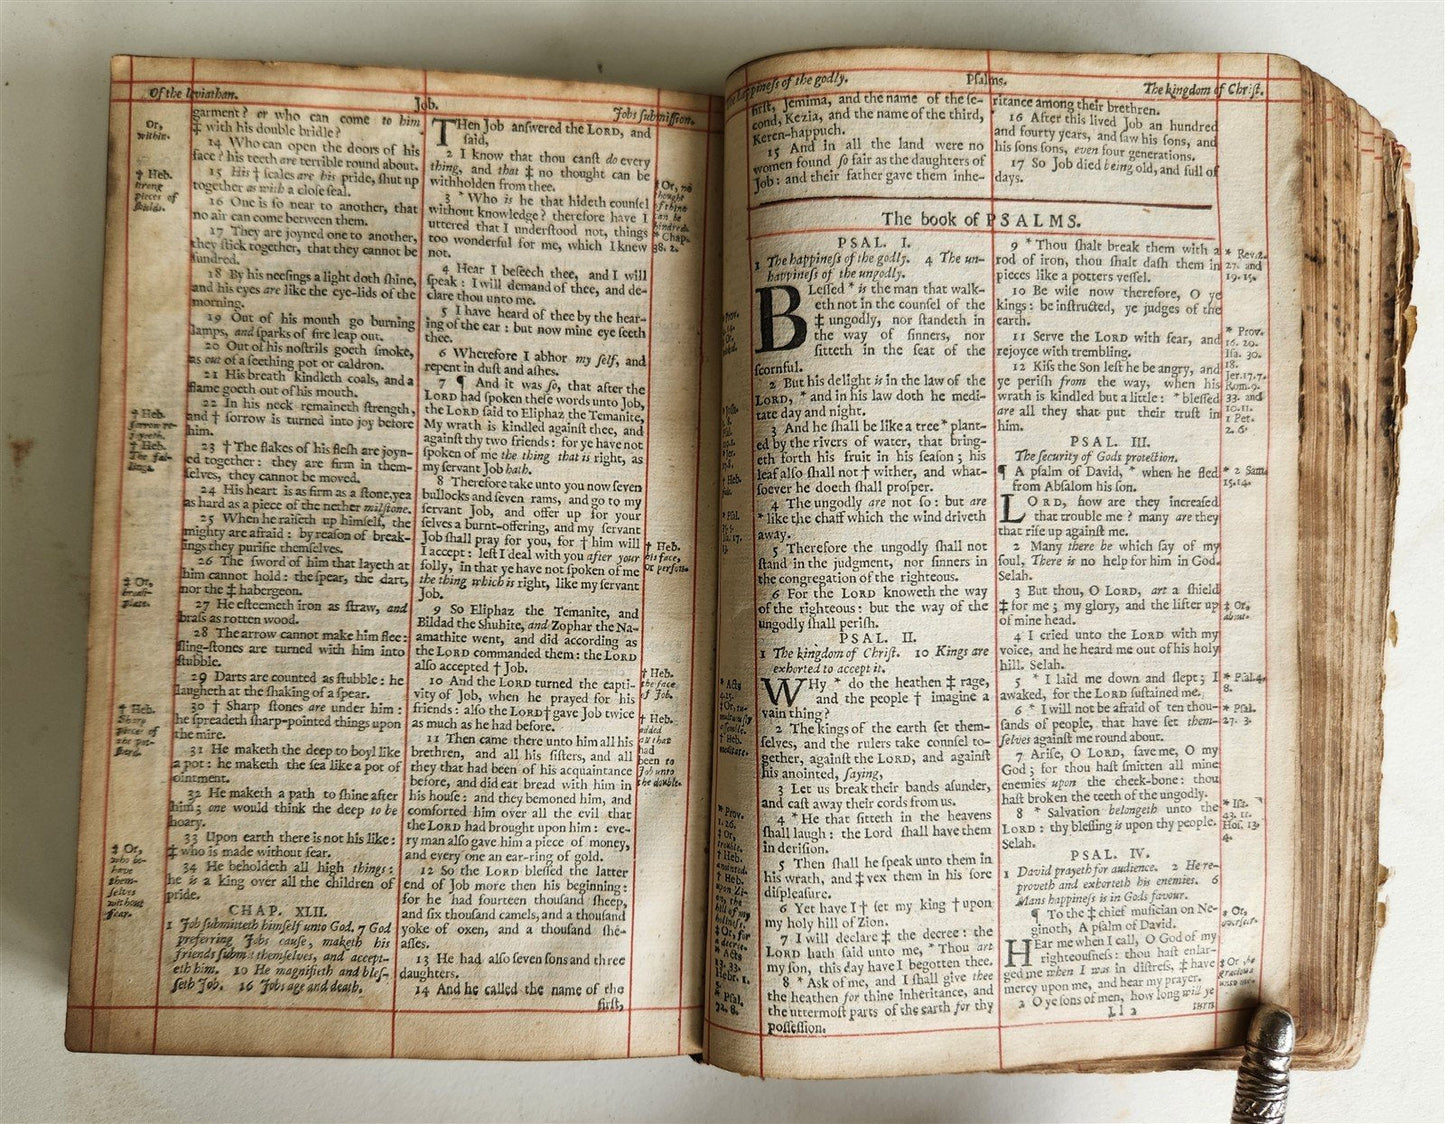 Of the leviathan.
Job.
Jobs submission.
Or,
within.
† Heb.
strong
pieces of
shields.
† Heb.
sorrow re-
joyceth.
† Heb.
The fal-
lings.
‡ Or,
breast-
plate.
† Heb.
Sharp
pieces of
‡ Or,
who be-
have
them-
selves
without
fear.
garment? or who can come to him
‡ with his double bridle?
14 Who can open the doors of his
face? his teeth are terrible round about.
15 His † ſcales are his pride, ſhut up
together as with a cloſe ſeal.
16 One is ſo near to another, that
no air can come between them.
17 They are joyned one to another,
they ſtick together, that they cannot be
ſundred.
18 By his neeſings a light doth ſhine,
and his eyes are like the eye-lids of the
morning.
19 Out of his mouth go burning
lamps, and ſparks of fire leap out.
20 Out of his noſtrils goeth ſmoke,
as out of a ſeething pot or caldron.
21 His breath kindleth coals, and a
flame goeth out of his mouth.
22 In his neck remaineth ſtrength,
and † ſorrow is turned into joy before
him.
23 † The flakes of his fleſh are joyn-
ed together: they are firm in them-
ſelves, they cannot be moved.
24 His heart is as firm as a ſtone, yea
as hard as a piece of the nether milſtone.
25 When he raiſeth up himſelf, the
mighty are afraid: by reaſon of break-
ings they purifie themſelves.
26 The ſword of him that layeth at
him cannot hold: the ſpear, the dart,
nor the ‡ habergeon.
27 He eſteemeth iron as ſtraw, and
braſs as rotten wood.
28 The arrow cannot make him flee:
ſling-ſtones are turned with him into
ſtubble.
29 Darts are counted as ſtubble: he
laugheth at the ſhaking of a ſpear.
30 † Sharp ſtones are under him:
he ſpreadeth ſharp-pointed things upon
the mire.
31 He maketh the deep to boyl like
a pot: he maketh the ſea like a pot of
ointment.
32 He maketh a path to ſhine after
him; one would think the deep to be
hoary.
33 Upon earth there is not his like:
‡ who is made without fear.
34 He beholdeth all high things:
he is a king over all the children of
pride.
CHAP. XLII.
1 Job ſubmitteth himſelf unto God. 7 God
preferring Jobs cauſe, maketh his
friends ſubmit themſelves, and accept-
eth him. 10 He magnifieth and bleſ-
ſeth Job. 16 Jobs age and death.
THen Job anſwered the LORD, and
ſaid,
2 I know that thou canſt do every
thing, and that ‡ no thought can be
withholden from thee.
3 * Who is he that hideth counſel
without knowledge? therefore have I
uttered that I underſtood not, things
too wonderful for me, which I knew
not.
4 Hear I beſeech thee, and I will
ſpeak: I will demand of thee, and de-
clare thou unto me.
5 I have heard of thee by the hear-
ing of the ear: but now mine eye ſeeth
thee.
6 Wherefore I abhor my ſelf, and
repent in duſt and aſhes.
7 ¶ And it was ſo, that after the
LORD had ſpoken theſe words unto Job,
the LORD ſaid to Eliphaz the Temanite,
My wrath is kindled againſt thee, and
againſt thy two friends: for ye have not
ſpoken of me the thing that is right, as
my ſervant Job hath.
8 Therefore take unto you now ſeven
bullocks and ſeven rams, and go to my
ſervant Job, and offer up for your
ſelves a burnt-offering, and my ſervant
Job ſhall pray for you, for † him will
I accept: leſt I deal with you after your
folly, in that ye have not ſpoken of me
the thing which is right, like my ſervant
Job.
9 So Eliphaz the Temanite, and
Bildad the Shuhite, and Zophar the Na-
amathite went, and did according as
the LORD commanded them: the LORD
alſo accepted † Job.
10 And the LORD turned the capti-
vity of Job, when he prayed for his
friends: alſo the LORD † gave Job twice
as much as he had before.
11 Then came there unto him all his
brethren, and all his ſiſters, and all
they that had been of his acquaintance
before, and did eat bread with him in
his houſe: and they bemoned him, and
comforted him over all the evil that
the LORD had brought upon him: eve-
ry man alſo gave him a piece of money,
and every one an ear-ring of gold.
12 So the LORD bleſſed the latter
end of Job more then his beginning:
for he had fourteen thouſand ſheep,
and ſix thouſand camels, and a thouſand
yoke of oxen, and a thouſand ſhe-
aſſes.
13 He had alſo ſeven ſons and three
daughters.
14 And he called the name of the
firſt,
‡ Or, no
thought
of thine
can be
hindred.
* Chap.
38. 2.
† Heb.
his face,
or perſon.
† Heb.
the face
of Job.
† Heb.
added
all that
had
been to
Job unto
the double.
The happineſs of the godly.
Pſalms.
The kingdom of Chriſt.
firſt, Jemima, and the name of the ſe-
cond, Kezia, and the name of the third,
Keren-happuch.
15 And in all the land were no
women found ſo fair as the daughters of
Job: and their father gave them inhe-
ritance among their brethren.
16 After this lived Job an hundred
and fourty years, and ſaw his ſons, and
his ſons ſons, even four generations.
17 So Job died being old, and full of
days.
The book of PSALMS.
PSAL. I.
1 The happineſs of the godly. 4 The un-
happineſs of the ungodly.
BLeſſed * is the man that walk-
eth not in the counſel of the
‡ ungodly, nor ſtandeth in
the way of ſinners, nor
ſitteth in the ſeat of the
ſcornful.
2 But his delight is in the law of the
LORD, * and in his law doth he medi-
tate day and night.
3 And he ſhall be like a tree * plant-
ed by the rivers of water, that bring-
eth forth his fruit in his ſeaſon; his
leaf alſo ſhall not † wither, and what-
ſoever he doeth ſhall proſper.
4 The ungodly are not ſo: but are
* like the chaff which the wind driveth
away.
5 Therefore the ungodly ſhall not
ſtand in the judgment, nor ſinners in
the congregation of the righteous.
6 For the LORD knoweth the way
of the righteous: but the way of the
ungodly ſhall periſh.
PSAL. II.
1 The kingdom of Chriſt. 10 Kings are
exhorted to accept it.
WHy * do the heathen ‡ rage,
and the people † imagine a
vain thing?
2 The kings of the earth ſet them-
ſelves, and the rulers take counſel to-
gether, againſt the LORD, and againſt
his anointed, ſaying,
3 Let us break their bands aſunder,
and caſt away their cords from us.
4 * He that ſitteth in the heavens
ſhall laugh: the Lord ſhall have them
in deriſion.
5 Then ſhall he ſpeak unto them in
his wrath, and ‡ vex them in his ſore
diſpleaſure.
6 Yet have I † ſet my king † upon
my holy hill of Zion.
7 I will declare ‡ the decree: the
LORD hath ſaid unto me, * Thou art
my ſon, this day have I begotten thee.
8 * Ask of me, and I ſhall give thee
the heathen for thine inheritance, and
the uttermoſt parts of the earth for thy
poſſeſſion.
* Prov.
* Acts
† Heb.
meditate.
* Prov.
1. 26.
‡ Or,
trouble.
† Heb.
anointed.
† Heb.
upon Zi-
on, the
hill of my
holineſs.
‡ Or, for
a decree.
* Acts
13. 33.
Hebr. 1.
5.
* Pſal.
72. 8.
9 * Thou ſhalt break them with a
rod of iron, thou ſhalt daſh them in
pieces like a potters veſſel.
10 Be wiſe now therefore, O ye
kings: be inſtructed, ye judges of the
earth.
11 Serve the LORD with fear, and
rejoyce with trembling.
12 Kiſs the Son leſt he be angry, and
ye periſh from the way, when his
wrath is kindled but a little: * bleſſed
are all they that put their truſt in
him.
PSAL. III.
The ſecurity of Gods protection.
¶ A pſalm of David, * when he fled
from Abſalom his ſon.
LORD, how are they increaſed
that trouble me? many are they
that riſe up againſt me.
2 Many there be which ſay of my
ſoul, There is no help for him in God.
Selah.
3 But thou, O LORD, art a ſhield
‡ for me; my glory, and the lifter up
of mine head.
4 I cried unto the LORD with my
voice, and he heard me out of his holy
hill. Selah.
5 * I laid me down and ſlept; I
awaked, for the LORD ſuſtained me.
6 * I will not be afraid of ten thou-
ſands of people, that have ſet them-
ſelves againſt me round about.
7 Ariſe, O LORD, ſave me, O my
God; for thou haſt ſmitten all mine
enemies upon the cheek-bone: thou
haſt broken the teeth of the ungodly.
8 * Salvation belongeth unto the
LORD: thy bleſſing is upon thy people.
Selah.
PSAL. IV.
1 David prayeth for audience. 2 He re-
proveth and exhorteth his enemies. 6
Mans happineſs is in Gods favour.
¶ To the ‡ chief muſician on Ne-
ginoth, A pſalm of David.
HEar me when I call, O God of my
righteouſneſs: thou haſt enlar-
ged me when I was in diſtreſs, ‡ have
mercy upon me, and hear my prayer.
2 O ye ſons of men, how long will ye
turn
Ll 2
* Rev. 2.
27. and
19. 15.
* Prov.
16. 20.
Iſa. 30.
18.
Jer. 17. 7.
Rom. 9.
33. and
10. 11.
1 Pet.
2. 6.
* 2 Sam.
15. 14.
‡ Or,
about.
* Pſal. 4.
8.
* Pſal.
27. 3.
* Iſa.
43. 11.
Hoſ. 13.
4.
‡ Or,
overſeer.
‡ Or, be
gracious
unto me.